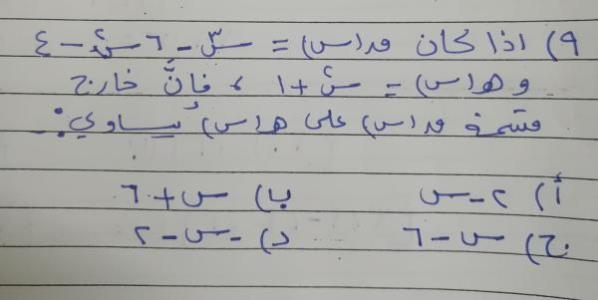 ٩) اذا كان ق(س) = س³ - ٦س² - ٤
و هـ(س) = س² + ١ ، فإنَّ خارج
قسمة ق(س) على هـ(س) يُساوي:
أ) ٢ - س ب) س + ٦
ج) س - ٦ د) -س - ٢